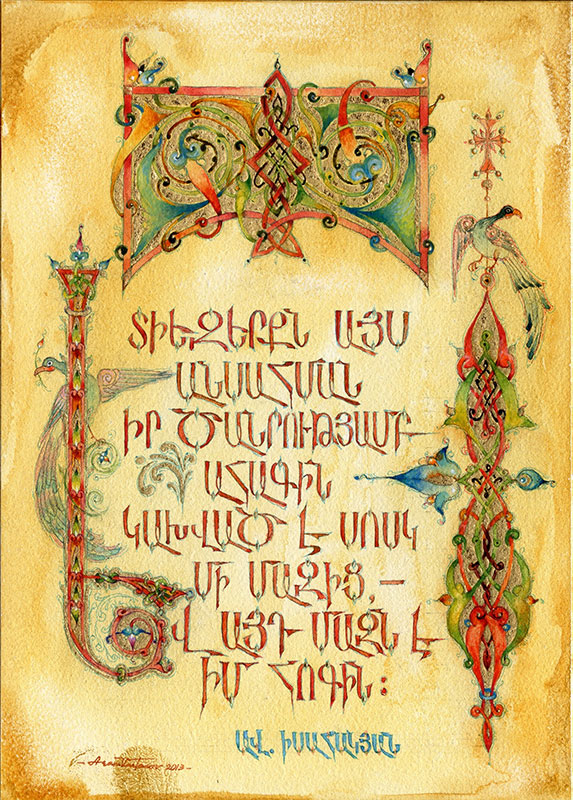 ՏԻԵԶԵՐՔՆ ԱՅՍ
ԱՆՍԱՀՄԱՆ
ԻՐ ԾԱՆՐՈՒԹՅԱՄԲ
ԱՀԱԳԻՆ
ԿԱԽՎԱԾ Է ՍՈՍԿ
ՄԻ ՄԱԶԻՑ,–
ԵՎ ԱՅԴ ՄԱԶՆ Է
ԻՄ ՀՈԳԻՆ:
ԱՎ. ԻՍԱՀԱԿՅԱՆ
2013